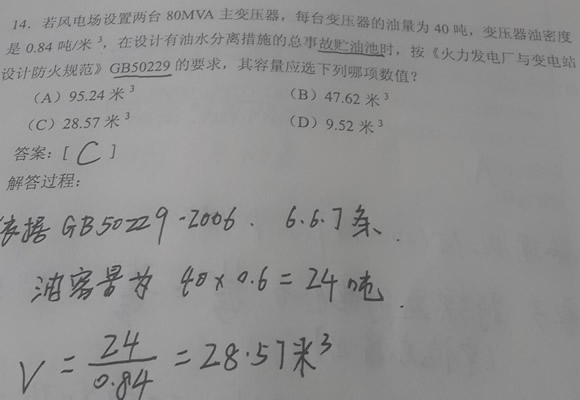 14. 若风电场设置两台 80MVA 主变压器，每台变压器的油量为 40 吨，变压器油密度
是 0.84 吨/米³，在设计有油水分离措施的总事故贮油池时，按《火力发电厂与变电站
设计防火规范》GB50229 的要求，其容量应选下列哪项数值？
（A）95.24 米³ （B）47.62 米³
（C）28.57 米³ （D）9.52 米³
答案：[ C ]
解答过程：
依据 GB50229-2006. 6.6.7条.
油容量为 40×0.6=24吨.
V = 24/0.84 = 28.57米³